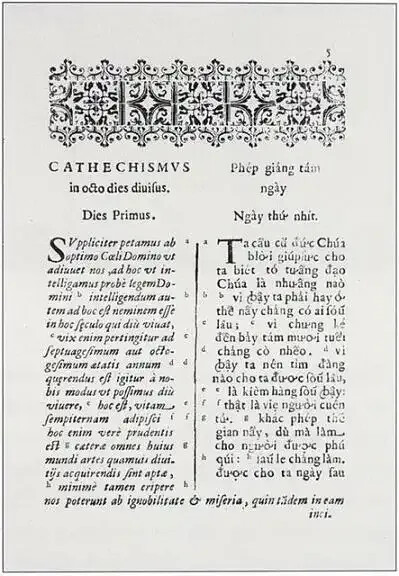 5
CATHECHISMVS
in octo dies diuisus.
Dies Primus.
SVppliciter petamus ab
optimo Cœli Domino vt
adiuuet nos, ad hoc vt in-
telligamus probè legem Do-
mini ᵇ intelligendum au-
tem ad hoc est neminem esse
in hoc seculo qui diù viuat,
ᶜ vix enim pertingitur ad
septuagesimum aut octo-
gesimum ætatis annum ᵈ
quęrendus est igitur à no-
bis modus vt possimus diù
viuere, ᵉ hoc est, vitam
sempiternam adipisci ᶠ
hoc enim verè prudentis
est ᵍ cæteræ omnes huius
mundi artes quamuis diui-
tijs acquirendis sint aptæ,
ʰ minimè tamen eripere
Phép giảng tám
ngày
Ngày thứ nhít.
Ta cầu cũ đức Chúa
blời giúpsức cho
ta biết tỏ tưầng đạo
Chúa là nhuầng nào
ᵇ vì ꞗậy ta phải hay ở
thế nầy chảng có ai sóũ
lâu; ᶜ vì chưng kẻ
đến bảy tám mươi tuểi
chảng có nhẽo. ᵈ vì
ꞗậy ta nên tìm đàng
nào cho ta được sóũ lâu,
ᵉ là kiếm hàng sóũ ꞗậy:
ᶠ thật là viẹc người cuên
tử. ᵍ khác phép thế
gian nầy, dù mà làm
cho người được phú
quí: ʰ sau le chảng làm.
được cho ta ngày sau
nos poterunt ab ignobilitate & miseria, quin tãdem in eam
inci.